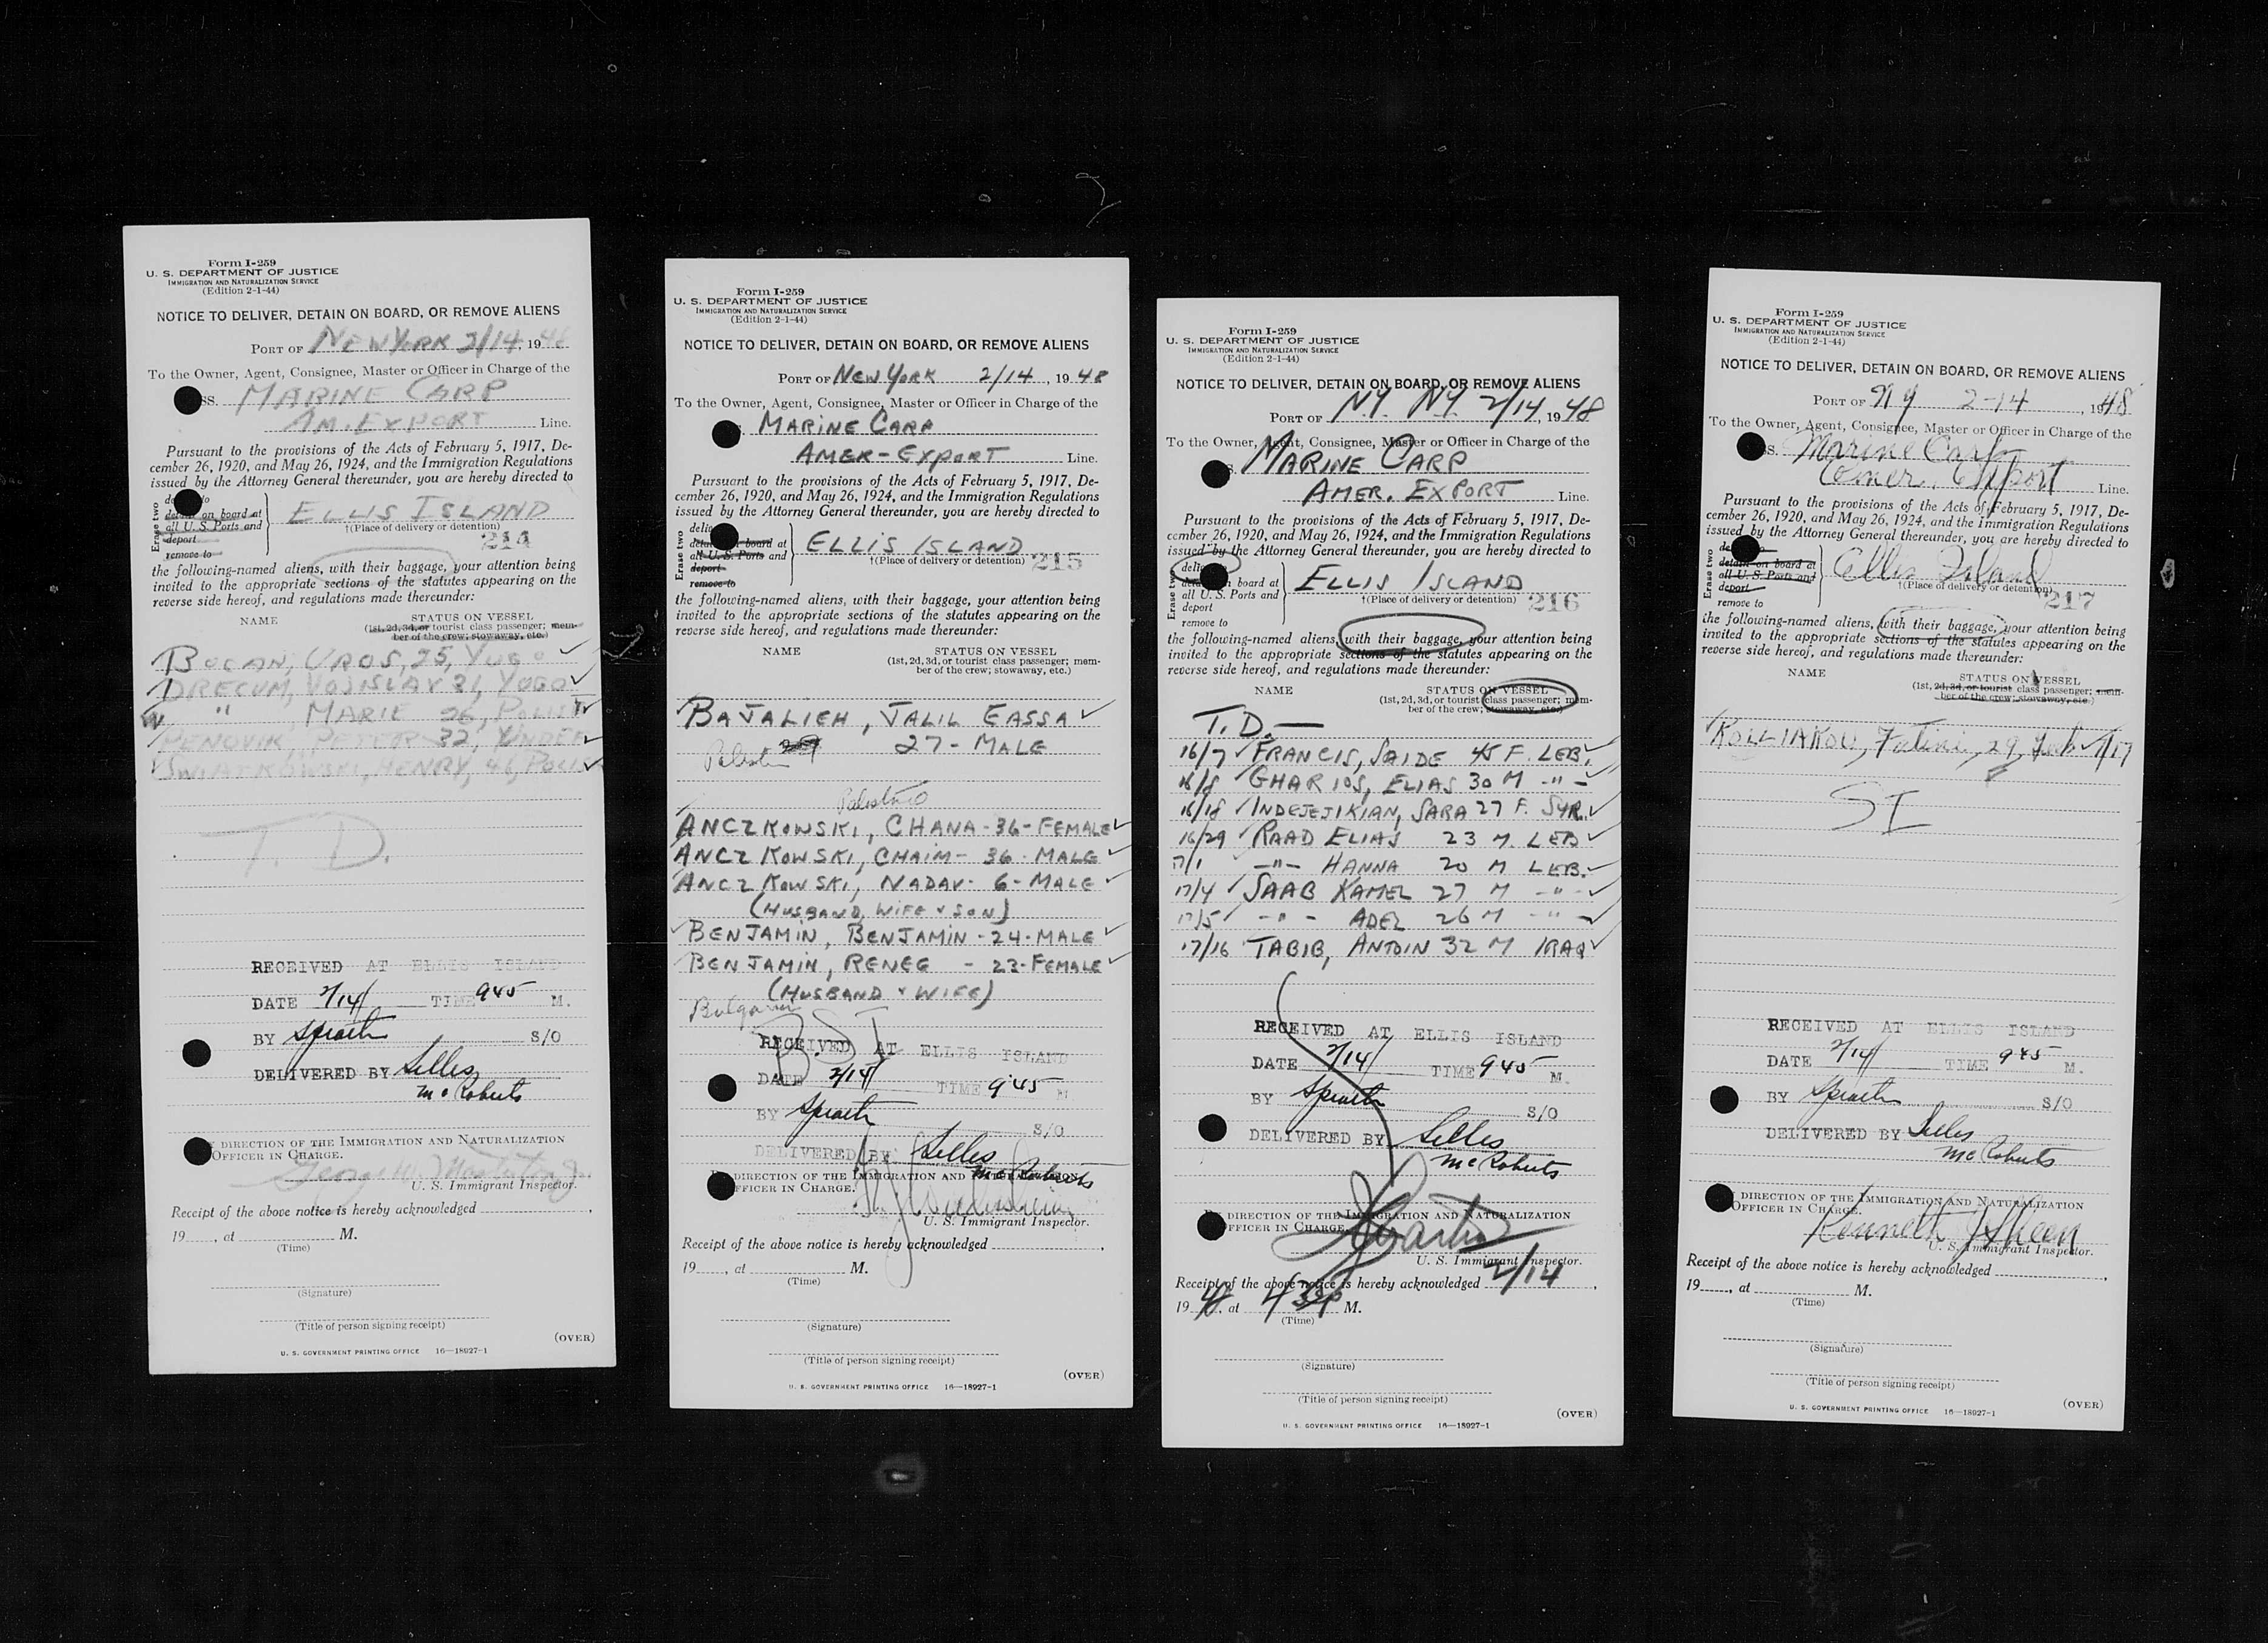 Form I-259
U. S. DEPARTMENT OF JUSTICE
IMMIGRATION AND NATURALIZATION SERVICE
(Edition 2-1-44)
NOTICE TO DELIVER, DETAIN ON BOARD, OR REMOVE ALIENS
PORT OF NEW YORK 2/14, 19 48
To the Owner, Agent, Consignee, Master or Officer in Charge of the
SS. MARINE CARP
AM. EXPORT Line.
Pursuant to the provisions of the Acts of February 5, 1917, De-
cember 26, 1920, and May 26, 1924, and the Immigration Regulations
issued by the Attorney General thereunder, you are hereby directed to
Erase two
on board at
all U. S. Ports and
deport
remove to
ELLIS ISLAND
†(Place of delivery or detention)
214
the following-named aliens, with their baggage, your attention being
invited to the appropriate sections of the statutes appearing on the
reverse side hereof, and regulations made thereunder:
NAME STATUS ON VESSEL
(1st, 2d, 3d, or tourist class passenger; mem-
ber of the crew; stowaway, etc.)
BOGAN, UROS, 25, YUGO ✓
DRECUM, VOJISLAV 31, YUGO ✓
" MARIE 26, POLISH
PENOVIK, PETER 32, UNDEF
SWIATKOWSKI, HENRY, 46, POLIS
T. D.
RECEIVED AT ELLIS ISLAND
DATE 2/14 TIME 945 M.
BY Spraeth S/O
DELIVERED BY Lilles
McRoberts
DIRECTION OF THE IMMIGRATION AND NATURALIZATION
OFFICER IN CHARGE.
U. S. Immigrant Inspector.
Receipt of the above notice is hereby acknowledged
19, at M.
(Time)
(Signature)
(Title of person signing receipt)
(OVER)
U. S. GOVERNMENT PRINTING OFFICE 16—18927-1
Form I-259
U. S. DEPARTMENT OF JUSTICE
IMMIGRATION AND NATURALIZATION SERVICE
(Edition 2-1-44)
NOTICE TO DELIVER, DETAIN ON BOARD, OR REMOVE ALIENS
PORT OF NEW YORK 2/14, 19 48
To the Owner, Agent, Consignee, Master or Officer in Charge of the
MARINE CARP
AMER-EXPORT Line.
Pursuant to the provisions of the Acts of February 5, 1917, De-
cember 26, 1920, and May 26, 1924, and the Immigration Regulations
issued by the Attorney General thereunder, you are hereby directed to
Erase two
board at
all U. S. Ports and
deport
remove to
ELLIS ISLAND
†(Place of delivery or detention)
215
the following-named aliens, with their baggage, your attention being
invited to the appropriate sections of the statutes appearing on the
reverse side hereof, and regulations made thereunder:
NAME STATUS ON VESSEL
(1st, 2d, 3d, or tourist class passenger; mem-
ber of the crew; stowaway, etc.)
BAJALIEH, JALIL EASSA ✓
Palestin 27 - MALE
Palestine
ANCZKOWSKI, CHANA - 36 - FEMALE ✓
ANCZKOWSKI, CHAIM - 36 - MALE ✓
ANCZKOWSKI, NADAV - 6 - MALE ✓
(HUSBAND, WIFE & SON)
BENJAMIN, BENJAMIN - 24 - MALE ✓
BENJAMIN, RENEE - 23 - FEMALE ✓
(HUSBAND & WIFE)
Bulgaria
RECEIVED AT ELLIS ISLAND
DATE 2/14 TIME 945 M
BY Spraeth S/O
DELIVERED BY Lilles
McRoberts
DIRECTION OF THE IMMIGRATION AND NATURALIZATION
OFFICER IN CHARGE.
U. S. Immigrant Inspector.
Receipt of the above notice is hereby acknowledged
19, at M.
(Time)
(Signature)
(Title of person signing receipt)
(OVER)
U. S. GOVERNMENT PRINTING OFFICE 16—18927-1
Form I-259
U. S. DEPARTMENT OF JUSTICE
IMMIGRATION AND NATURALIZATION SERVICE
(Edition 2-1-44)
NOTICE TO DELIVER, DETAIN ON BOARD, OR REMOVE ALIENS
PORT OF N.Y. N.Y. 2/14, 19 48
To the Owner, Agent, Consignee, Master or Officer in Charge of the
MARINE CARP
AMER. EXPORT Line.
Pursuant to the provisions of the Acts of February 5, 1917, De-
cember 26, 1920, and May 26, 1924, and the Immigration Regulations
issued by the Attorney General thereunder, you are hereby directed to
Erase two
board at
all U. S. Ports and
deport
remove to
ELLIS ISLAND
†(Place of delivery or detention)
216
the following-named aliens, with their baggage, your attention being
invited to the appropriate sections of the statutes appearing on the
reverse side hereof, and regulations made thereunder:
NAME STATUS ON VESSEL
(1st, 2d, 3d, or tourist class passenger; mem-
ber of the crew; stowaway, etc.)
T.D. —
16/7 ✓ FRANCIS, SAIDE 45 F. LEB. ✓
16/8 ✓ GHARIOS, ELIAS 30 M -"- ✓
16/18 ✓ INDEJEJIKIAN, SARA 27 F. SYR. ✓
16/29 ✓ RAAD ELIAS 23 M. LEB ✓
17/1 ✓ -"- HANNA 20 M LEB. ✓
17/4 ✓ SAAB KAMEL 27 M -"- ✓
17/5 ✓ -"- ADEL 26 M -"- ✓
17/16 TABIB, ANTOIN 32 M IRAQ ✓
RECEIVED AT ELLIS ISLAND
DATE 2/14 TIME 945 M.
BY Spraeth S/O
DELIVERED BY Lilles
McRoberts
DIRECTION OF THE IMMIGRATION AND NATURALIZATION
OFFICER IN CHARGE.
U. S. Immigrant Inspector.
Receipt of the above notice is hereby acknowledged 2/14,
19 48, at M.
(Time)
(Signature)
(Title of person signing receipt)
(OVER)
U. S. GOVERNMENT PRINTING OFFICE 16—18927-1
Form I-259
U. S. DEPARTMENT OF JUSTICE
IMMIGRATION AND NATURALIZATION SERVICE
(Edition 2-1-44)
NOTICE TO DELIVER, DETAIN ON BOARD, OR REMOVE ALIENS
PORT OF NY 2-14, 19 48
To the Owner, Agent, Consignee, Master or Officer in Charge of the
SS. Marine Carp
Amer. Export Line.
Pursuant to the provisions of the Acts of February 5, 1917, De-
cember 26, 1920, and May 26, 1924, and the Immigration Regulations
issued by the Attorney General thereunder, you are hereby directed to
Erase two
detain on board at
all U. S. Ports and
deport
remove to
Ellis Island
†(Place of delivery or detention)
217
the following-named aliens, with their baggage, your attention being
invited to the appropriate sections of the statutes appearing on the
reverse side hereof, and regulations made thereunder:
NAME STATUS ON VESSEL
(1st, 2d, 3d, or tourist class passenger; mem-
ber of the crew; stowaway, etc.)
KOLLIAKOU, Fotini, 29,
SI
RECEIVED AT ELLIS ISLAND
DATE 2/14 TIME 945 M.
BY Spraeth S/O
DELIVERED BY Lilles
McRoberts
DIRECTION OF THE IMMIGRATION AND NATURALIZATION
OFFICER IN CHARGE.
Kenneth J Skeen
U. S. Immigrant Inspector.
Receipt of the above notice is hereby acknowledged
19, at M.
(Time)
(Signature)
(Title of person signing receipt)
(OVER)
U. S. GOVERNMENT PRINTING OFFICE 16—18927-1